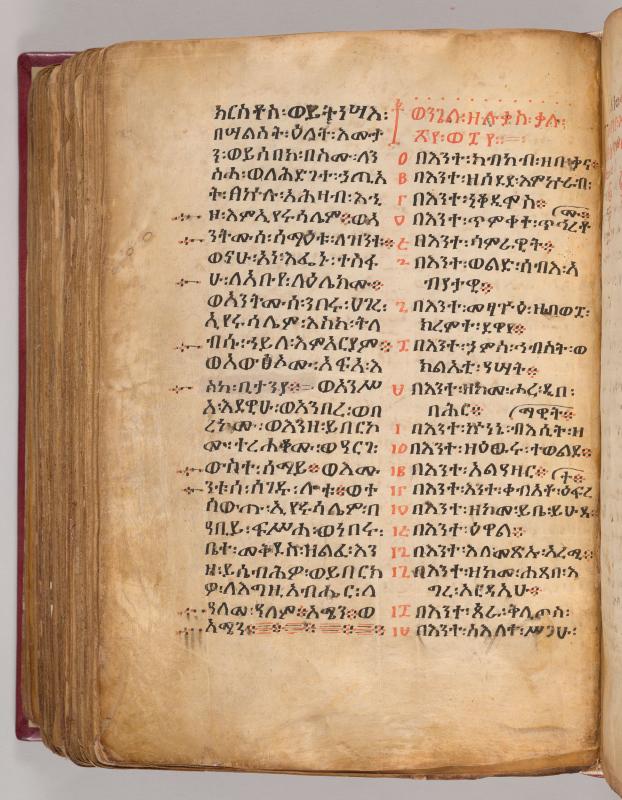 ክርስቶስ፡ወይትነሣእ፡
በሣልስት፡ዕለት፡እሙታ
ን፡ወይሰበክ፡በስሙ፡ለን
ስሓ፡ወለኅድገተ፡ኃጢአ
ት፡በኵሉ፡አሕዛብ፡እኂ
ዞ፡እምኢየሩሳሌም።ወአ
ንትሙሰ፡ሰማዕቱ፡ለዝንቱ።
ወናሁ፡አነ፡እፌኑ፡ተስፋ
ሁ፡ለአቡየ፡ላዕሌክሙ።
ወአንትሙሰ፡ንበሩ፡ሀገረ፡
ኢየሩሳሌም፡እስከ፡ትለ
ብሱ፡ኀይለ፡እምአርያም።
ወአውፅኦሙ፡አፍአ፡እ
ስከ፡ቢታንያ።ወአንሥ
አ፡እደዊሁ፡ወአንበረ፡ወባ
ረኮሙ፡ወእንዘ፡ይባርክ
ሙ፡ተረሐቆሙ፡ወዓርገ፡
ውስተ፡ሰማይ።ወእሙ
ንቱሰ፡ሰገዱ፡ሎቱ።ወት
ሰውጡ፡ኢየሩሳሌም፡በ
ዓቢይ፡ፍሥሐ፡ወነበሩ፡
ቤተ፡መቅደስ፡ዘልፈ፡እን
ዘ፡ይሴብሕዎ፡ወይባርክ
ዎ፡ለእግዚአብሔር፡ለ
ዓለመ፡ዓለም።አሜን።ወ
አሜን።
ወንጌል፡ዘሉቃስ፡ቃሉ፡
፳፻፡ወ፰፻።
፩ በእንተ፡ከብካብ፡ዘበቃና።
፪ በእንተ፡ዘሰደደ፡እምኵራብ፡
፫ በእንተ፡ኒቆዲሞስ።
፬ በእንተ፡ጥምቀተ፡ጥኅረቶ
ሙ።
፭ በእንተ፡ሳምራዊት።
፮ በእንተ፡ወልደ፡ሰብአ፡አ
ብያታዊ።
፯ በእንተ፡መፃጕዕ፡ዘበ፴ወ፰፡
ክረምት፡ደዋዩ።
፰ በእንተ፡ኃምስ፡ኅብስት፡ወ
ክልኤቲ፡ዓሣት።
፱ በእንተ፡ዘከመ፡ሖረ፡ዲበ፡
ባሕር።
፲ በእንተ፡ብእሲት፡ዘ
ማዊት።
፲፩ በእንተ፡ዘዕዉሩ፡ተወልደ።
፲፪ በእንተ፡አልዓዛር።
፲፫ በእንተ፡እንተ፡ቀብአቶ፡ዕፍረ
ተ።
፲፬ በእንተ፡ዘከመ፡ይቤ፡ይሁዳ።
፲፭ በእንተ፡ዕዋል።
፲፮ በእንተ፡እለመጽኡ፡አረሚ።
፲፯ በእንተ፡ዘከመ፡ሐጸበ፡እ
ግረ፡አርዳኢሁ።
፲፰ በእንተ፡ጰራቅሊጦስ፡
፲፱ በእንተ፡ስእለተ፡ሥጋሁ፡